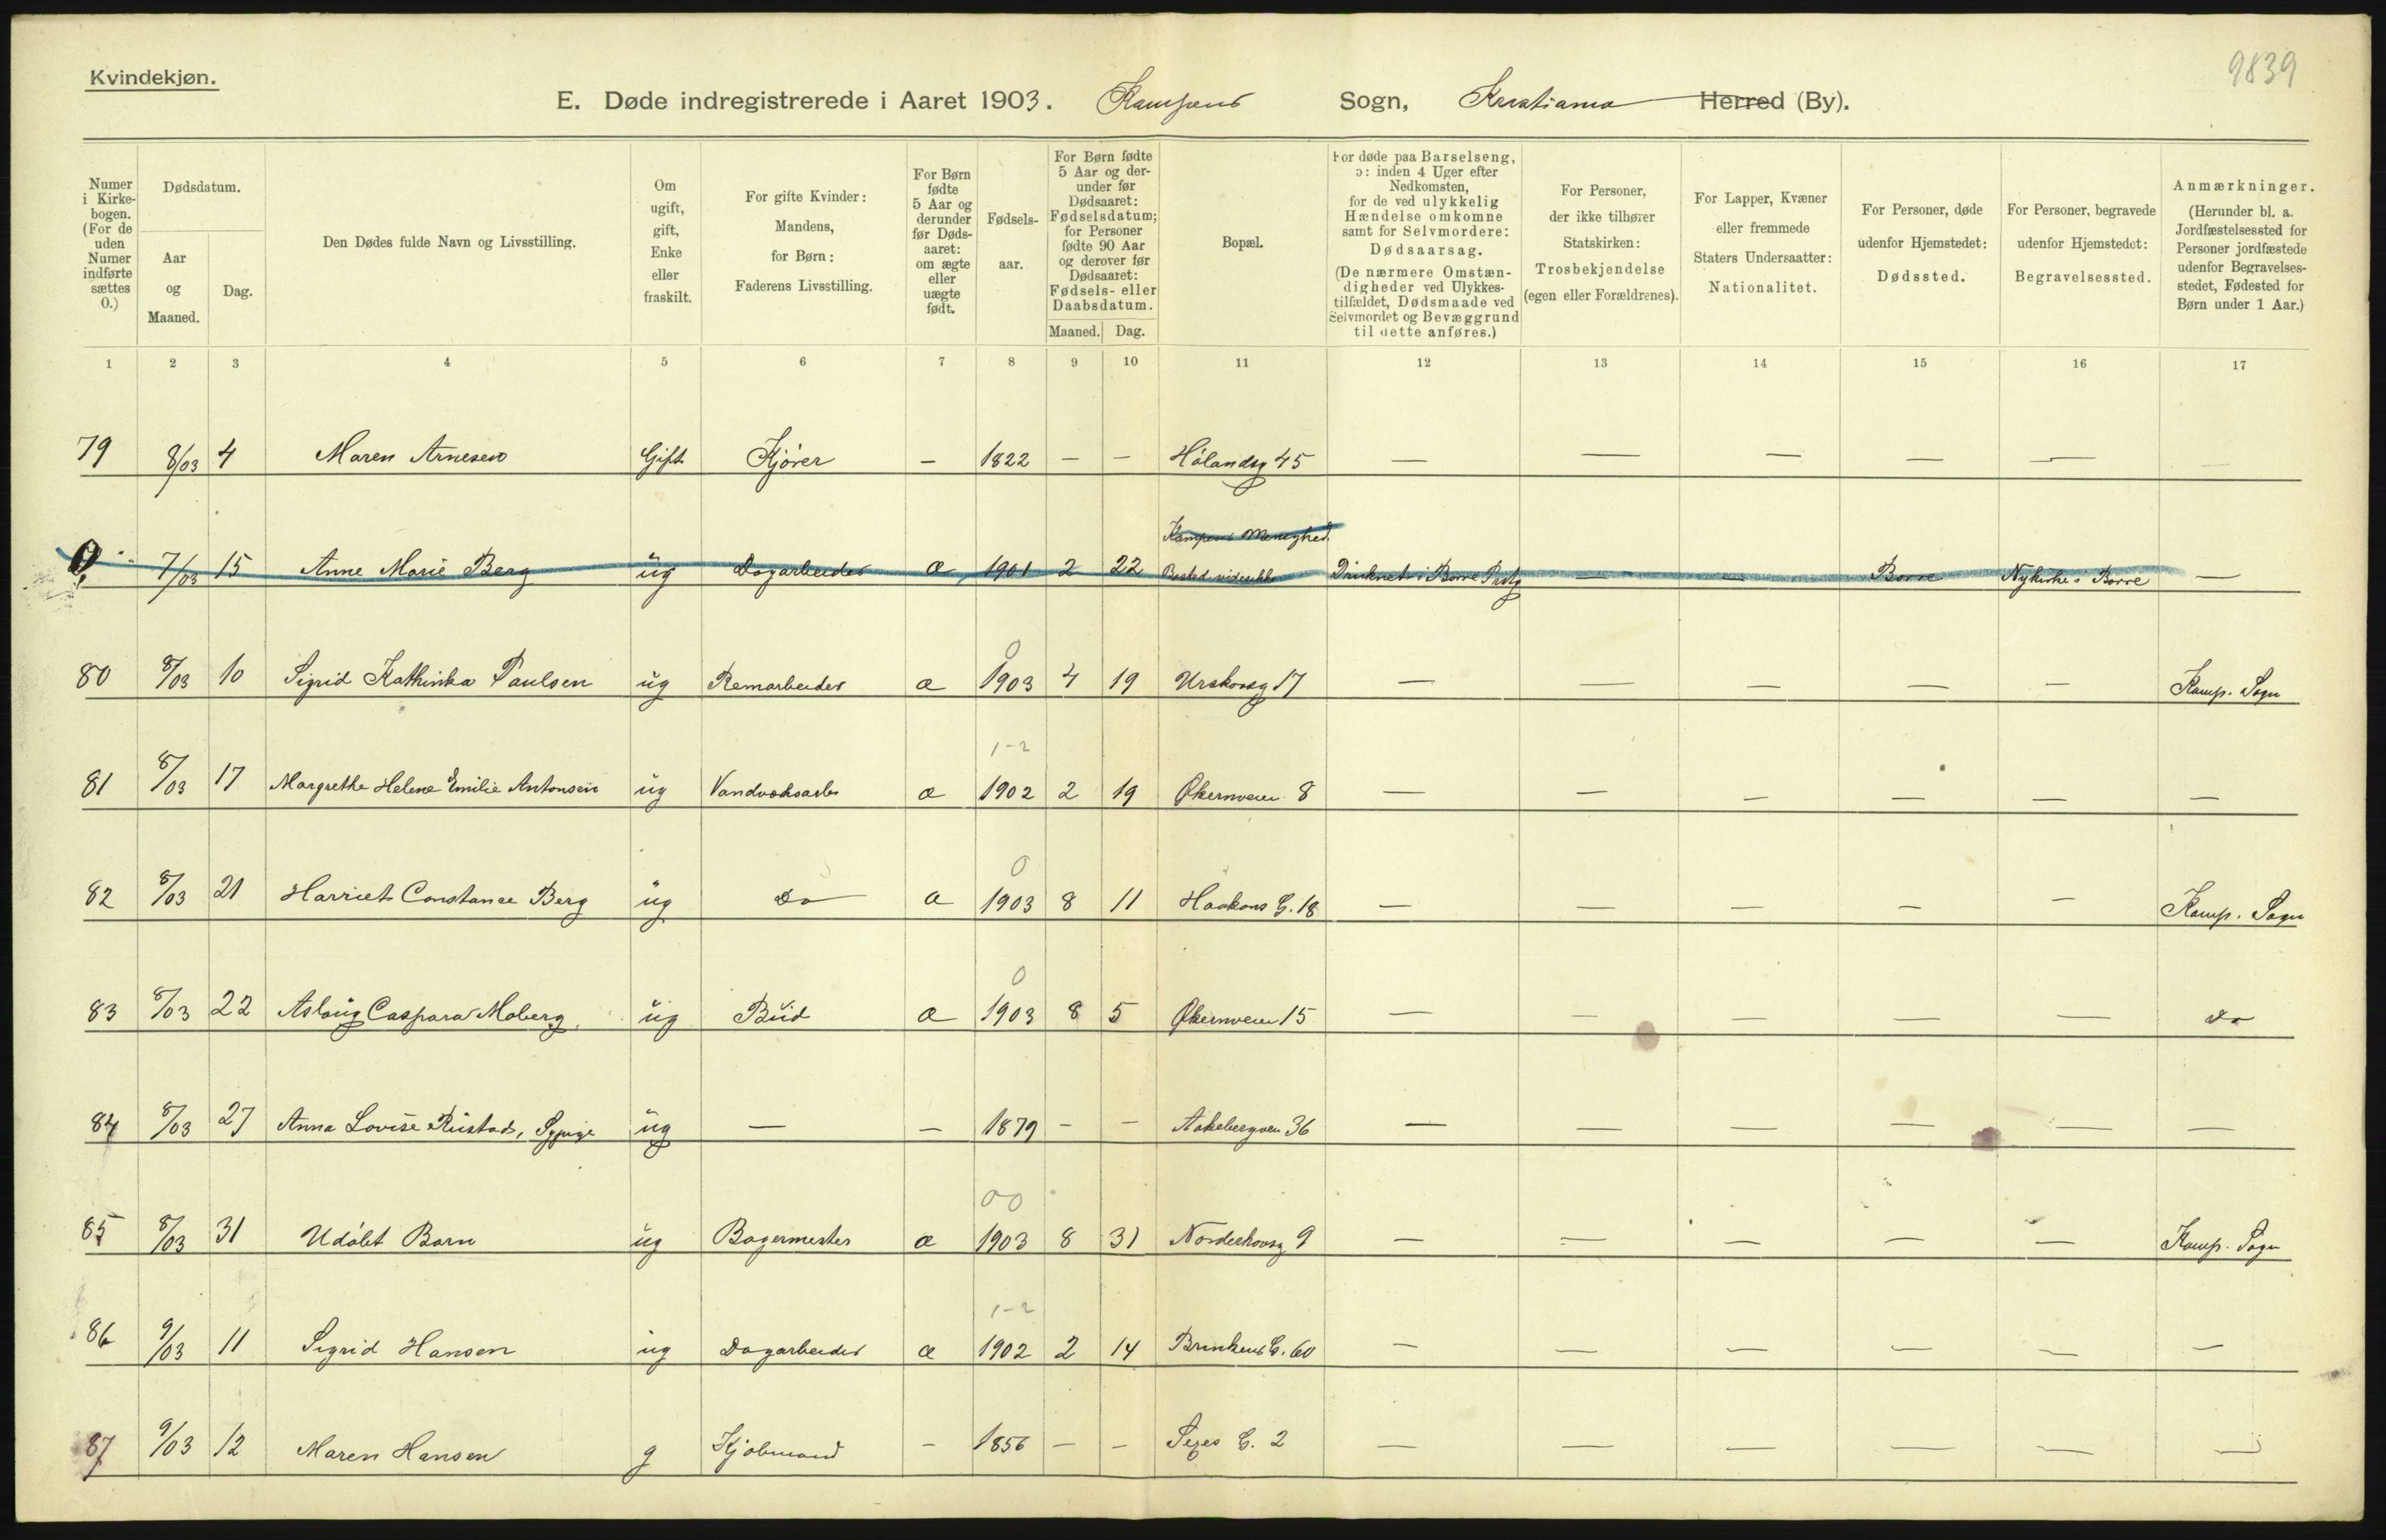 9839
Kvindekjøn.
E. Døde indregistrerede i Aaret 1903. Kampens Sogn, Kristiania Herred (By).
Numer i Kirke-bogen. (For de uden Numer indførte sættes 0.)
Dødsdatum.
Aar og Maaned.
Dag.
Den Dødes fulde Navn og Livsstilling.
Om ugift, gift, Enke eller fraskilt.
For gifte Kvinder: Mandens, for Børn: Faderens Livsstilling.
For Børn fødte 5 Aar og derunder før Døds-aaret: om ægte eller uægte født.
Fødsels-aar.
For Børn fødte 5 Aar og der-under før Dødsaaret: Fødselsdatum; for Personer fødte 90 Aar og derover før Dødsaaret: Fødsels- eller Daabsdatum.
Maaned. Dag.
Bopæl.
For døde paa Barselseng, ɔ: inden 4 Uger efter Nedkomsten, for de ved ulykkelig Hændelse omkomne samt for Selvmordere: Dødsaarsag. (De nærmere Omstæn-digheder ved Ulykkes-tilfældet, Dødsmaade ved Selvmordet og Bevæggrund til dette anføres.)
For Personer, der ikke tilhører Statskirken: Trosbekjendelse (egen eller Forældrenes).
For Lapper, Kvæner eller fremmede Staters Undersaatter: Nationalitet.
For Personer, døde udenfor Hjemstedet: Dødssted.
For Personer, begravede udenfor Hjemstedet: Begravelsessted.
Anmærkninger. (Herunder bl. a. Jordfæstelsessted for Personer jordfæstede udenfor Begravelses-stedet, Fødested for Børn under 1 Aar.)
1 2 3 4 5 6 7 8 9 10 11 12 13 14 15 16 17
79 8/03 4 Maren Arnesen Gift Kjører — 1822 — — Hølandsg 45 — — — — — —
Kampens Menighed
0. 7/03 15 Anne Marie Berg ug Dagarbeider æ 1901 2 22 Bosted vides ikke Druknet i Borre Prstg — — Borre Nykirke i Borre —
0
80 8/03 10 Sigrid Kathinka Paulsen ug Remarbeider æ 1903 4 19 Urskovsg 17 — — — — — Kamp. Sogn
1-2
81 8/03 17 Margrethe Helene Emilie Antonsen ug Vandværksarb æ 1902 2 19 Økernveien 8 — — — — — —
0
82 8/03 21 Harriet Constance Berg ug Do æ 1903 8 11 Haakons G. 18 — — — — — Kamp. Sogn
0
83 8/03 22 Aslaug Caspara Moberg ug Bud æ 1903 8 5 Økernveien 15 — — — — — Do
84 8/03 27 Anna Lovise Rustad, Sypige ug — — 1879 — — Aakebergveien 36 — — — — — —
00
85 8/03 31 Udøbt Barn ug Bagermester æ 1903 8 31 Norderhovsg 9 — — — — — Kamp. Sogn
1-2
86 9/03 11 Sigrid Hansen ug Dagarbeider æ 1902 2 14 Brinkens G. 60 — — — — — —
87 9/03 12 Maren Hansen g Kjøbmand — 1856 — — G. 2 — — — — — —